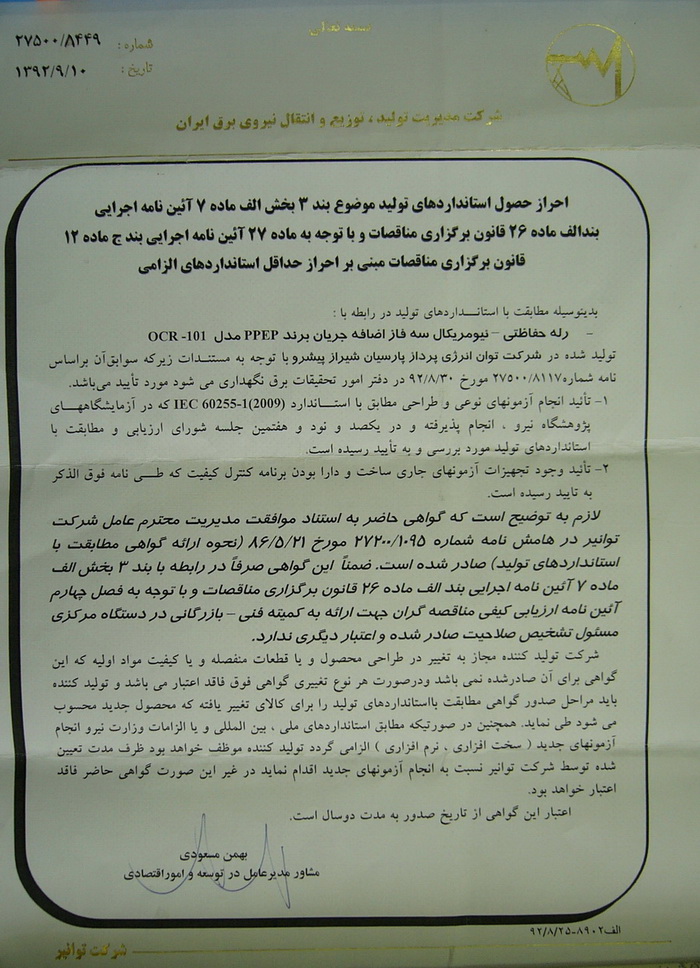 شماره : ۲۷۵۰۰/۸۴۴۹
تاریخ : ۱۳۹۲/۹/۱۰
شرکت مدیریت تولید ، توزیع و انتقال نیروی برق ایران
احراز حصول استانداردهای تولید موضوع بند ۳ بخش الف ماده ۷ آئین نامه اجرایی
بندالف ماده ۲۶ قانون برگزاری مناقصات و با توجه به ماده ۲۷ آئین نامه اجرایی بند ج ماده ۱۲
قانون برگزاری مناقصات مبنی بر احراز حداقل استانداردهای الزامی
بدینوسیله مطابقت با استانداردهای تولید در رابطه با :
- رله حفاظتی – نیومریکال سه فاز اضافه جریان برند PPEP مدل OCR -101
تولید شده در شرکت توان انرژی پرداز پارسیان شیراز پیشرو با توجه به مستندات زیرکه سوابق آن براساس
نامه شماره ۲۷۵۰۰/۸۱۱۷ مورخ ۹۲/۸/۳۰ در دفتر امور تحقیقات برق نگهداری می شود مورد تأیید می‌باشد.
۱- تأئید انجام آزمونهای نوعی و طراحی مطابق با استاندارد IEC 60255-1(2009) که در آزمایشگاههای
پژوهشگاه نیرو ، انجام پذیرفته و در یکصد و نود و هفتمین جلسه شورای ارزیابی و مطابقت با
استانداردهای تولید مورد بررسی و به تأیید رسیده است.
۲- تأئید وجود تجهیزات آزمونهای جاری ساخت و دارا بودن برنامه کنترل کیفیت که طی نامه فوق الذکر
به تایید رسیده است.
لازم به توضیح است که گواهی حاضر به استناد موافقت مدیریت محترم عامل شرکت
توانیر در هامش نامه شماره ۲۷۲۰۰/۱۰۹۵ مورخ ۸۶/۵/۲۱ (نحوه ارائه گواهی مطابقت با
استانداردهای تولید) صادر شده است. ضمناً این گواهی صرفاً در رابطه با بند ۳ بخش الف
ماده ۷ آئین نامه اجرایی بند الف ماده ۲۶ قانون برگزاری مناقصات و با توجه به فصل چهارم
آئین نامه ارزیابی کیفی مناقصه گران جهت ارائه به کمیته فنی – بازرگانی در دستگاه مرکزی
مسئول تشخیص صلاحیت صادر شده و اعتبار دیگری ندارد.
شرکت تولید کننده مجاز به تغییر در طراحی محصول و یا قطعات منفصله و یا کیفیت مواد اولیه که این
گواهی برای آن صادرشده نمی باشد ودرصورت هر نوع تغییری گواهی فوق فاقد اعتبار می باشد و تولید کننده
باید مراحل صدور گواهی مطابقت بااستانداردهای تولید را برای کالای تغییر یافته که محصول جدید محسوب
می شود طی نماید. همچنین در صورتیکه مطابق استانداردهای ملی ، بین المللی و یا الزامات وزارت نیرو انجام
آزمونهای جدید ( سخت افزاری ، نرم افزاری ) الزامی گردد تولید کننده موظف خواهد بود ظرف مدت تعیین
شده توسط شرکت توانیر نسبت به انجام آزمونهای جدید اقدام نماید در غیر این صورت گواهی حاضر فاقد
اعتبار خواهد بود.
اعتبار این گواهی از تاریخ صدور به مدت دوسال است.
بهمن مسعودی
مشاور مدیرعامل در توسعه و اموراقتصادی
الف۸۹۰۲-۹۲/۸/۲۵
شرکت توانیر